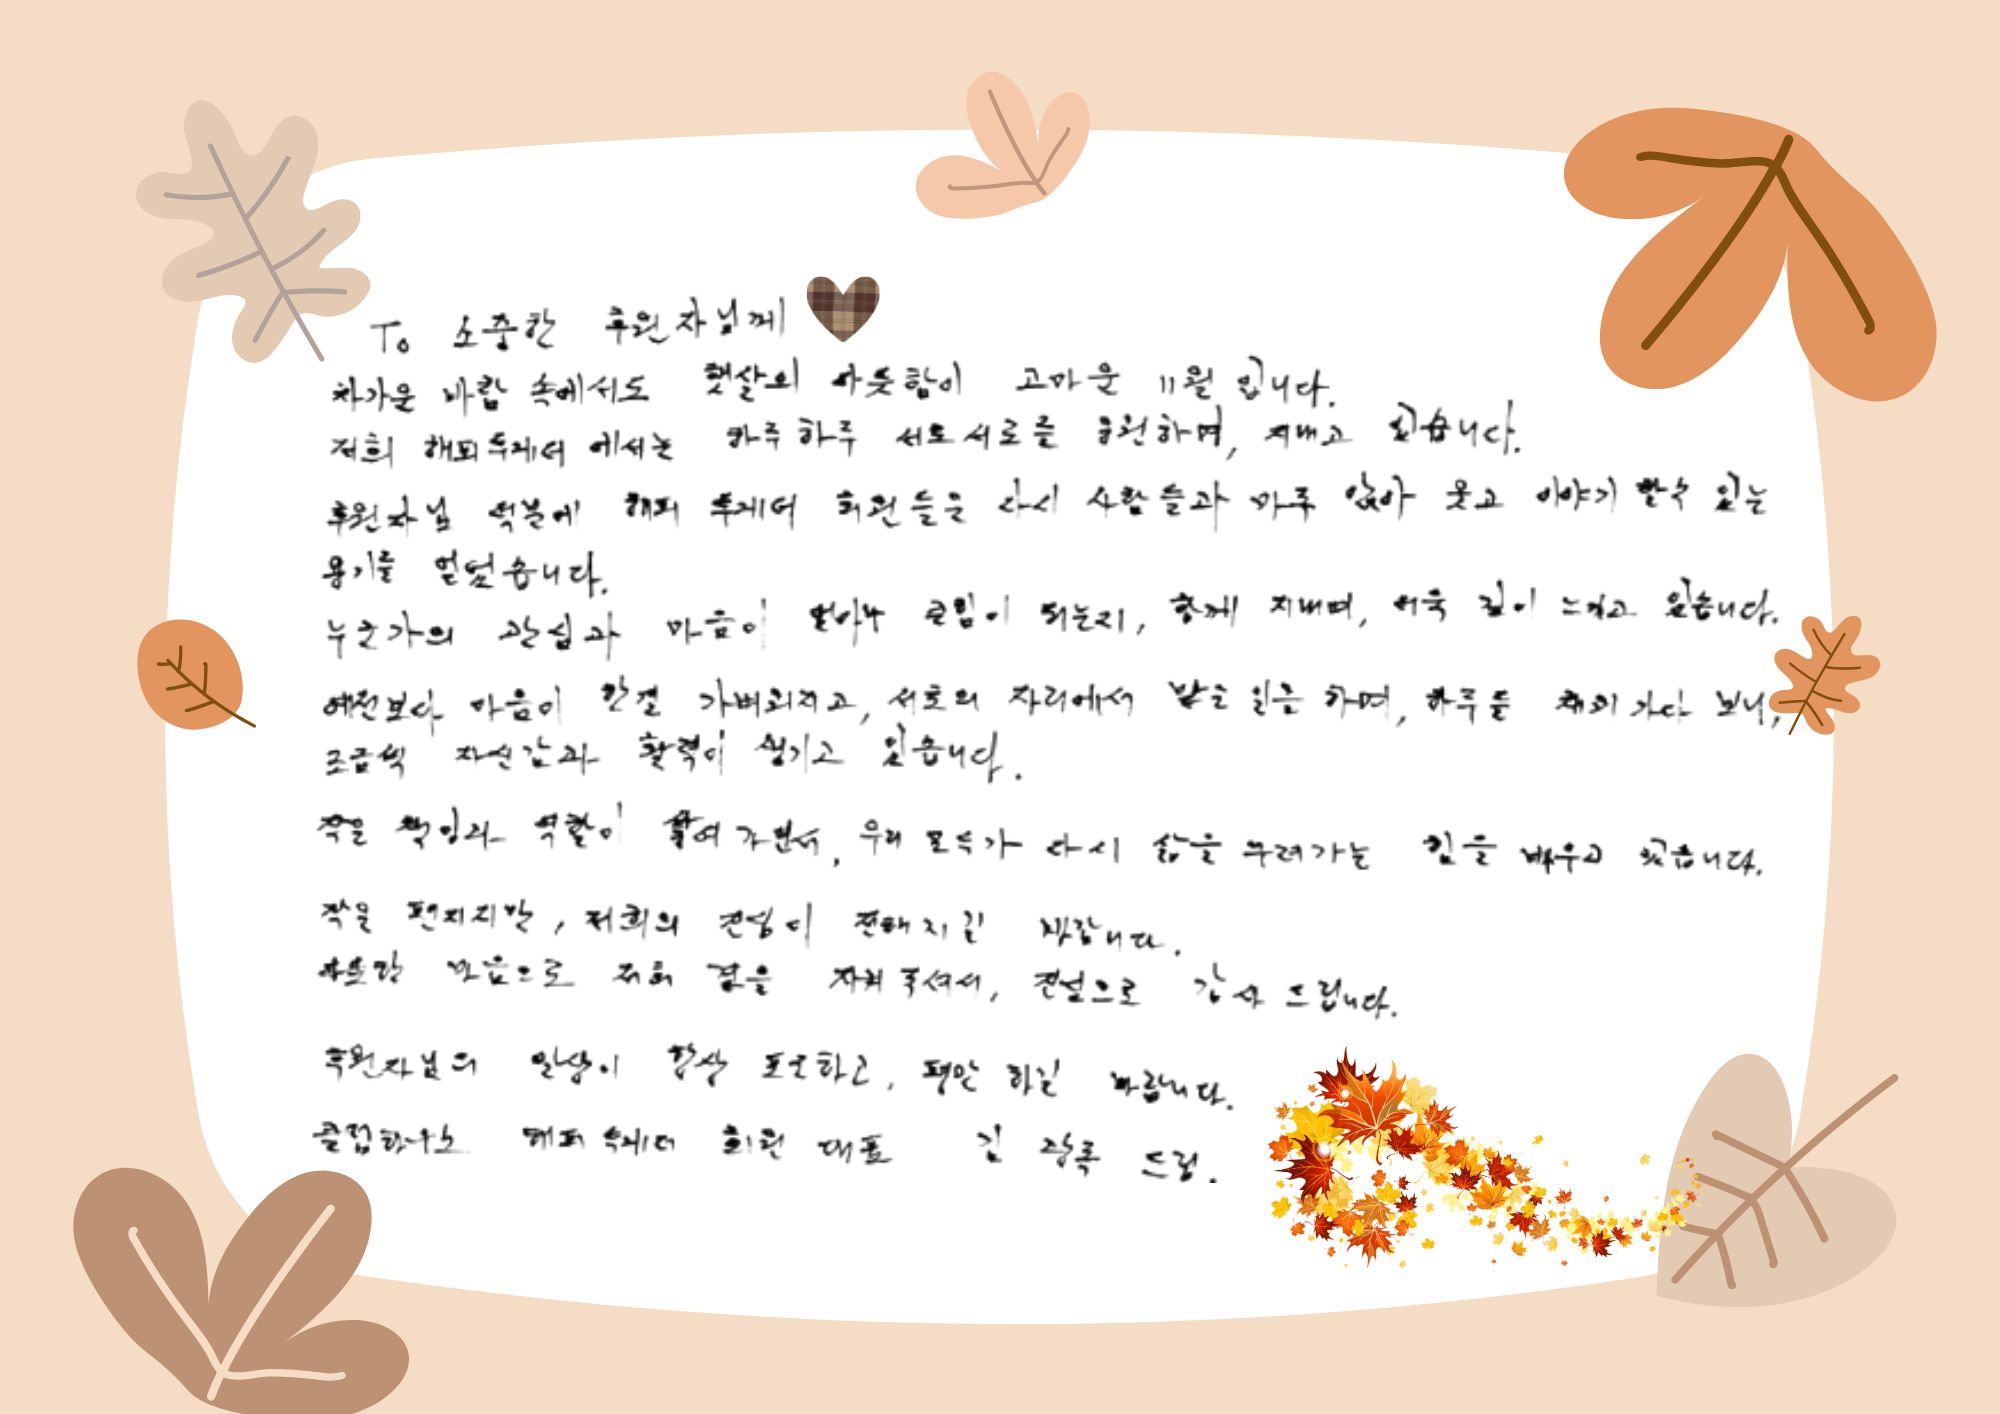 To 소중한 후원자님께
차가운 바람 속에서도 햇살의 따뜻함이 고마운 11월 입니다.
저희 해피투게더 에서는 하루하루 서로서로를 응원하며, 지내고 있습니다.
후원자님 덕분에 해피 투게더 회원들은 다시 사람들과 마주 앉아 웃고 이야기 할수 있는
용기를 얻었습니다.
누군가의 관심과 마음이 얼마나 큰힘이 되는지, 함께 지내며, 더욱 깊이 느끼고 있습니다.
예전보다 마음이 한결 가벼워지고, 서로의 자리에서 맡은 일을 하며, 하루를 채워가다 보니,
조금씩 자신감과 활력이 생기고 있습니다.
작은 책임과 역할이 쌓여 가면서, 우리 모두가 다시 삶을 누려가는 힘을 배우고 있습니다.
작은 편지지만, 저희의 진심이 전해지길 바랍니다.
따뜻한 마음으로 저희 곁을 지켜주셔서, 진심으로 감사 드립니다.
후원자님의 일상이 항상 포근하고, 평안 하길 바랍니다.
클럽하우스 해피투게더 회원 대표 김 드림.